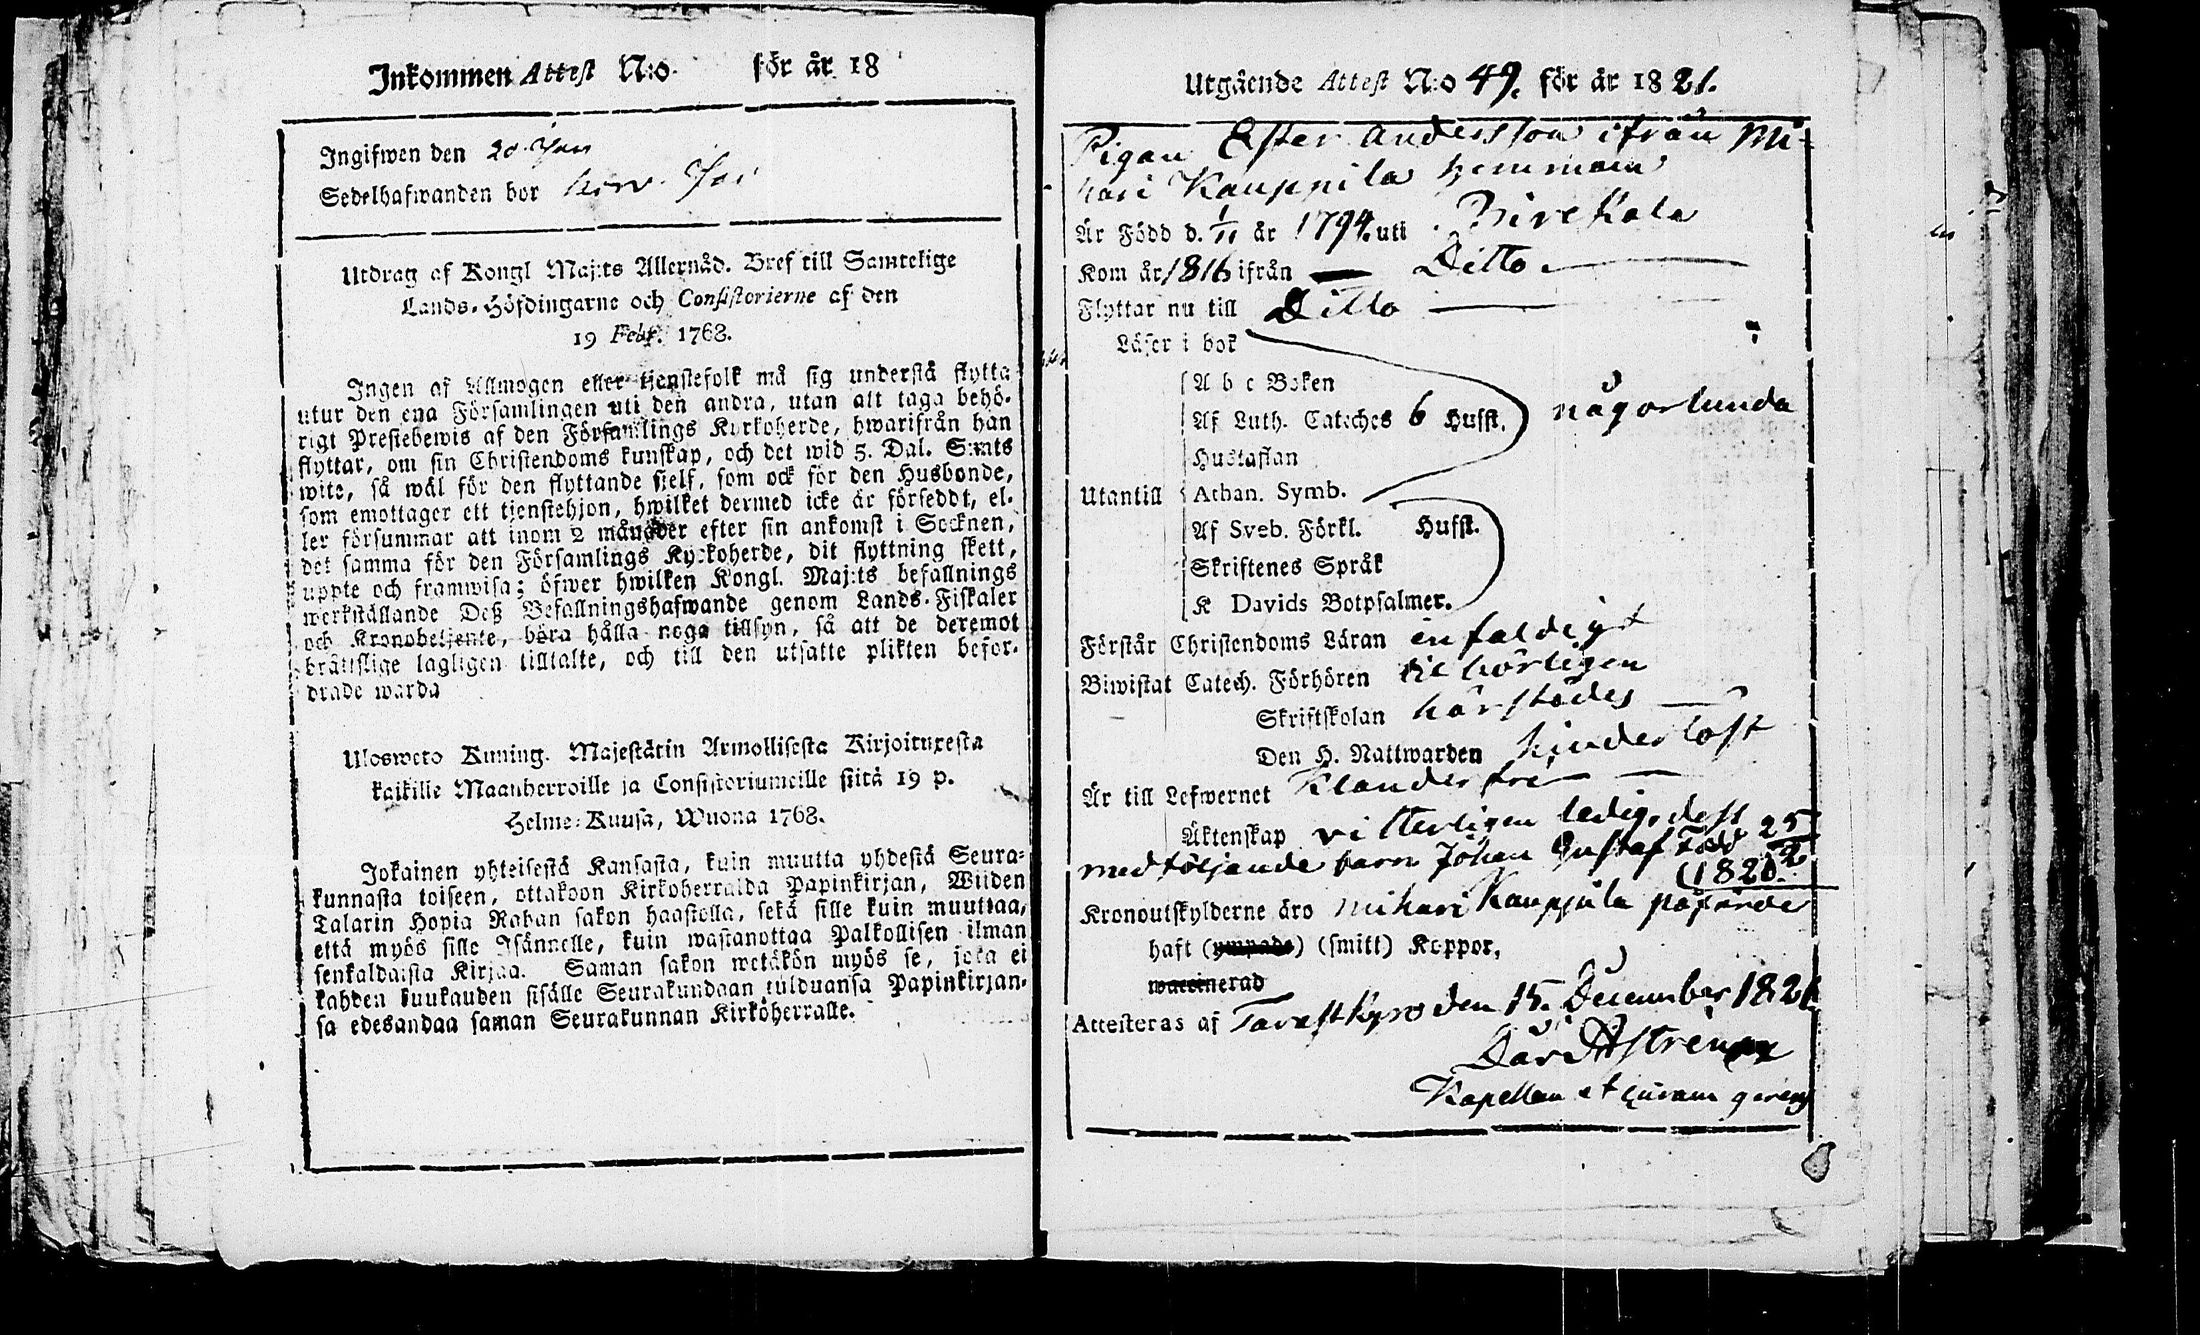 Inkommen Attest N:o för år 18
Ingifwen den 20 Jan
Sedelhafwanden bor
Utdrag af Kongl Maj:ts Allernåd. Bref till Samtelige
Lands-Höfdingarne och Consistorierne af den
19 Febr. 1768.
Ingen af Allmogen eller tjenstefolk må sig understå flytta
utur den ena Församlingen uti den andra, utan att taga behö-
rigt Prestebewis af den Församlings Kyrkoherde, hwarifrån han
flyttar, om sin Christendoms kunskap, och det wid 5. Dal. S:mts
wite, så wäl för den flyttande sjelf, som ock för den Husbonde,
som emottager ett tjenstehjon, hwilket dermed icke är försedt, el-
ler försummar att inom 2 månader efter sin ankomst i Socknen,
det samma för den Församlings Kyrkoherde, dit flyttning skett,
uppte och framwisa; öfwer hwilken Kongl. Maj:ts befallnings
werkställande Deß Befallningshafwande genom Lands-Fiskaler
och Kronobetjente, böra hålla noga tillsyn, så att de deremot
bråttslige lagligen tilltalte, och till den utsatte plikten befor-
drade warda
Ulosweto Kuning. Majestätin Armollisesta Kirjoituxesta
kaikille Maanherroille ja Consistoriumeille siitä 19 p.
Helme-Kuusa, Wuona 1768.
Jokainen yhteisestä Kansasta, kuin muutta yhdestä Seura-
kunnasta toiseen, ottakoon Kirkoherralda Papinkirjan, Wiiden
Talarin Hopia Rahan sakon haastolla, sekä sille kuin muuttaa,
että myös sille Isännelle, kuin wastanottaa Palkollisen ilman
senkaldaista Kirjaa. Saman sakon wetäkön myös se, joka ei
kahden kuukauden sisälle Seurakundaan tulduansa Papinkirjan-
sa edesandaa saman Seurakunnan Kirköherralle.
Utgående Attest N:o 49. för år 1821.
Pigan Ester Andersson ifrån Mi-
hari Kauppila hemman
Är Född d. 1/11 år 1794. uti Birckala
Kom år 1816 ifrån Ditto
Flyttar nu till Ditto
Läser i bok
A b c Boken
Af Luth. Cateches 6 Hufst. någorlunda
Hustaflan
Utantill Athan. Symb.
Af Sveb. Förkl. Hufst.
Skriftenes Språk
K Davids Botpsalmer.
Förstår Christendoms Läran enfaldigt
Biwistat Catech. Förhören tilbörligen
Skriftskolan härstädes
Den H. Nattwarden hinderlöst
Är till Lefwernet Klanderfri
Äktenskap vitterligen ledig, dess
medföljande barn Johan Gustaf född 25/2
1820.
Kronoutskylderne äro Mihari Kauppila påförde
haft (ympade) (smitt) Koppor,
waccinerad
Attesteras af Tavastkyro den 15. December 1821
Kapellan et curam gerens